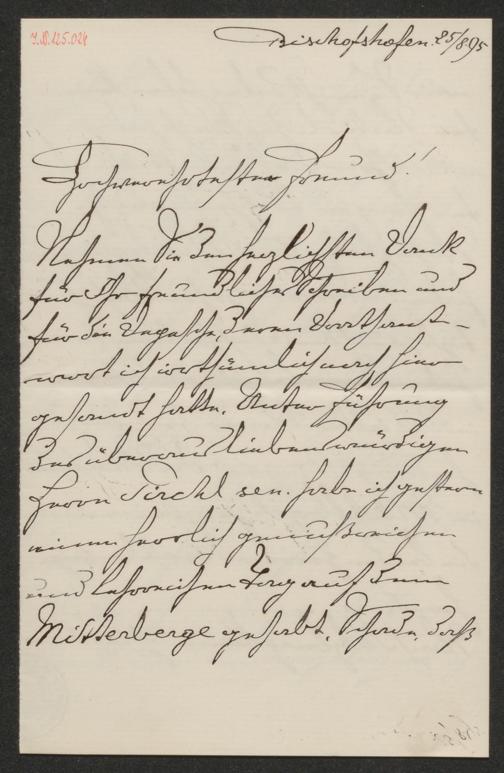 I.N. 125.024
Bischofshofen 25/8 95
Hochverehrtester Freund!
Nehmen Sie den herzlichsten Dank
für Ihr freundliches Schreiben und
für die Depesche, deren Vorthaut-
wort ich irrthümlich nach hier
gesandt hatte. Unter Führung
des überaus liebenswürdigen
Herrn Pirchl sen. habe ich gestern
einen herrlich genußreichen
und lehrreichen Tag auf dem
Mitterberge gehabt. Schade, daß